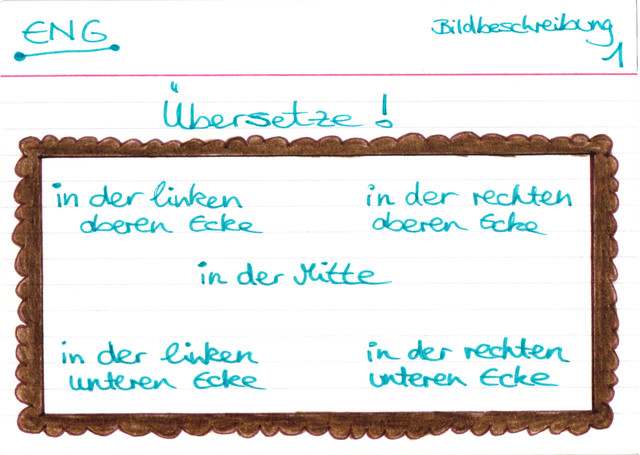 ENG
Bildbeschreibung
1
Übersetze!
in der linken
oberen Ecke
in der rechten
oberen Ecke
in der Mitte
in der linken
unteren Ecke
in der rechten
unteren Ecke